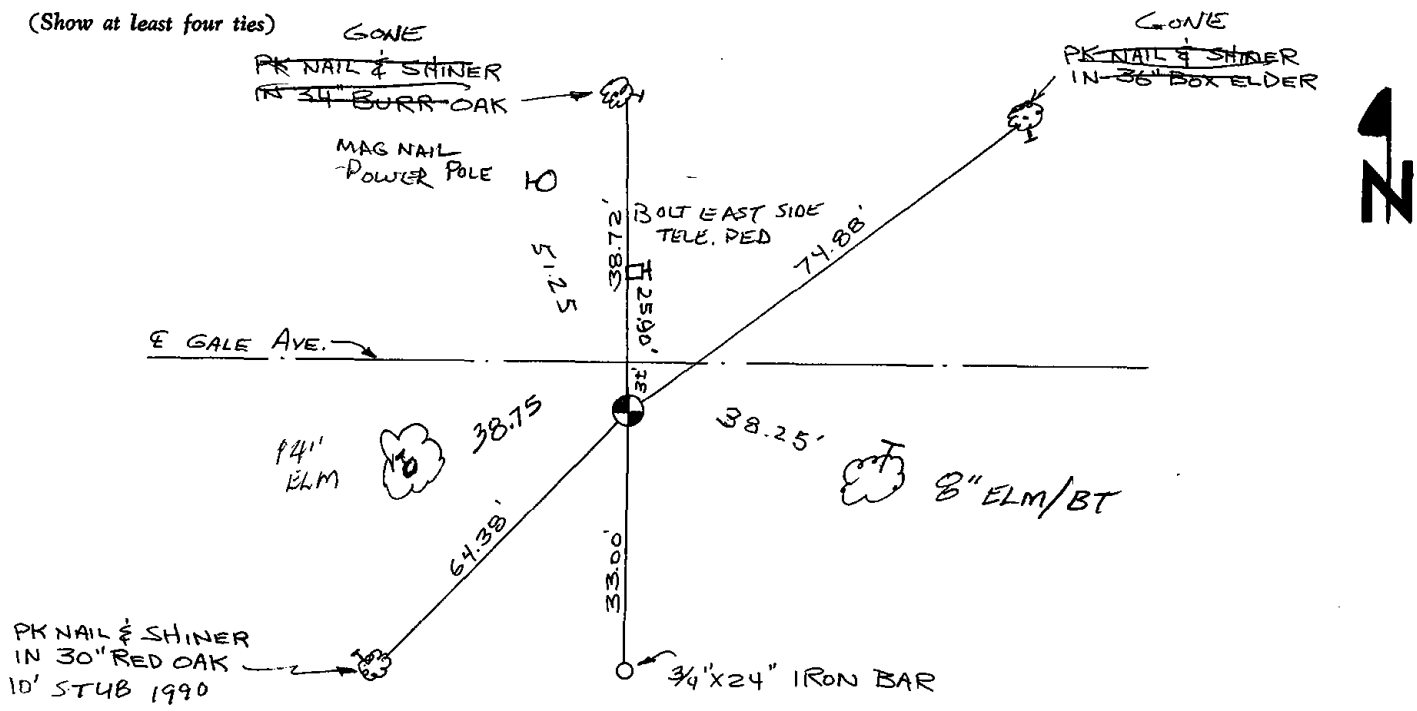 (Show at least four ties)
GONE
PK NAIL & SHINER
IN 34" BURR OAK
GONE
PK NAIL & SHINER
IN 36" BOX ELDER
N
MAG NAIL
POWER POLE
38.72'
BOLT EAST SIDE
TELE. PED
74.88'
51.25
25.90'
℄ GALE AVE.
14"
ELM
38.75
38.25'
8" ELM/BT
64.38'
33.00'
PK NAIL & SHINER
IN 30" RED OAK
10' STUB 1990
3/4"X24" IRON BAR